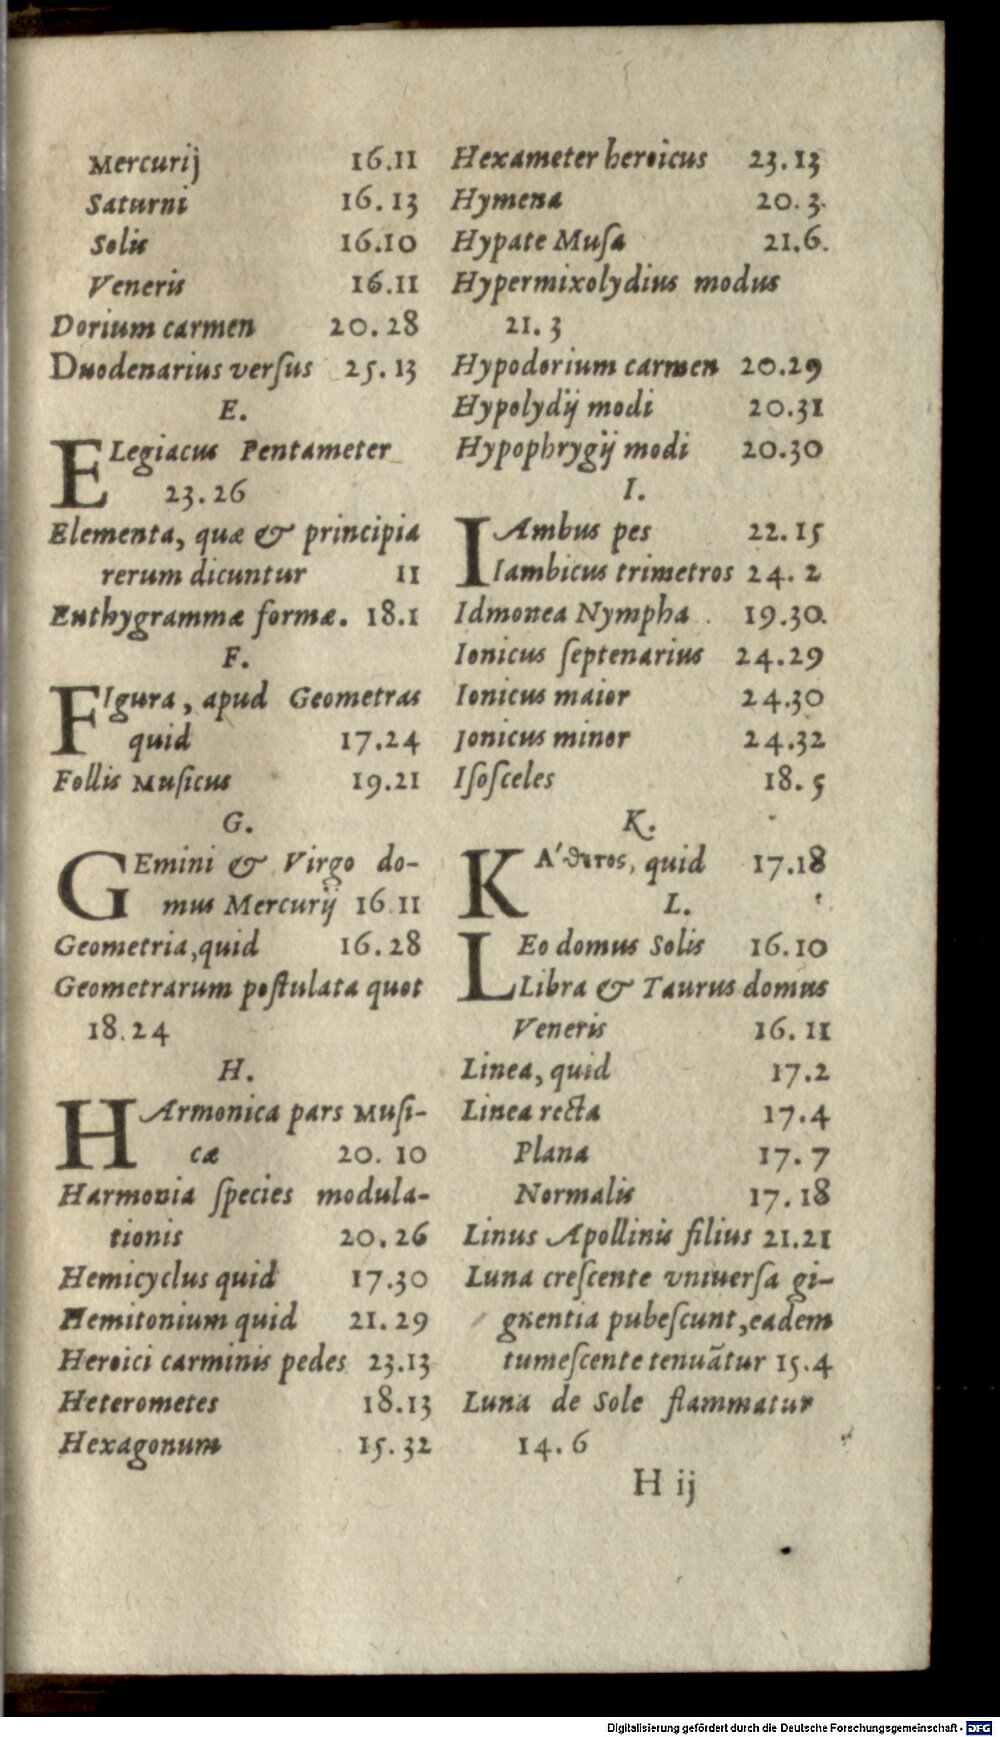 Mercurij 16.11
Saturni 16.13
Solis 16.10
Veneris 16.11
Dorium carmen 20.28
Duodenarius verſus 25.13
E.
ELegiacus Pentameter
23.26
Elementa, quæ & principia
rerum dicuntur 11
Euthygrammæ formæ. 18.1
F.
FIgura, apud Geometras
quid 17.24
Follis Muſicus 19.21
G.
GEmini & Virgo do-
mus Mercurij 16.11
Geometria, quid 16.28
Geometrarum poſtulata quot
18.24
H.
HArmonica pars Muſi-
cæ 20.10
Harmonia ſpecies modula-
tionis 20.26
Hemicyclus quid 17.30
Hemitonium quid 21.29
Heroici carminis pedes 23.13
Heterometes 18.13
Hexagonum 15.32
Hexameter heroicus 23.13
Hymena 20.3.
Hypate Muſa 21.6.
Hypermixolydius modus
21.3
Hypodorium carmen 20.29
Hypolydij modi 20.31
Hypophrygij modi 20.30
I.
IAmbus pes 22.15
Iambicus trimetros 24.2
Idmonea Nympha 19.30.
Ionicus ſeptenarius 24.29
Ionicus maior 24.30
Ionicus minor 24.32
Iſoſceles 18.5
K.
KΆθετος, quid 17.18
L.
LEo domus Solis 16.10
Libra & Taurus domus
Veneris 16.11
Linea, quid 17.2
Linea recta 17.4
Plana 17.7
Normalis 17.18
Linus Apollinis filius 21.21
Luna creſcente vniuerſa gi-
gnentia pubeſcunt, eadem
tumeſcente tenuãtur 15.4
Luna de Sole flammatur
14.6
H ij
Digitalisierung gefördert durch die Deutsche Forschungsgemeinschaft - DFG